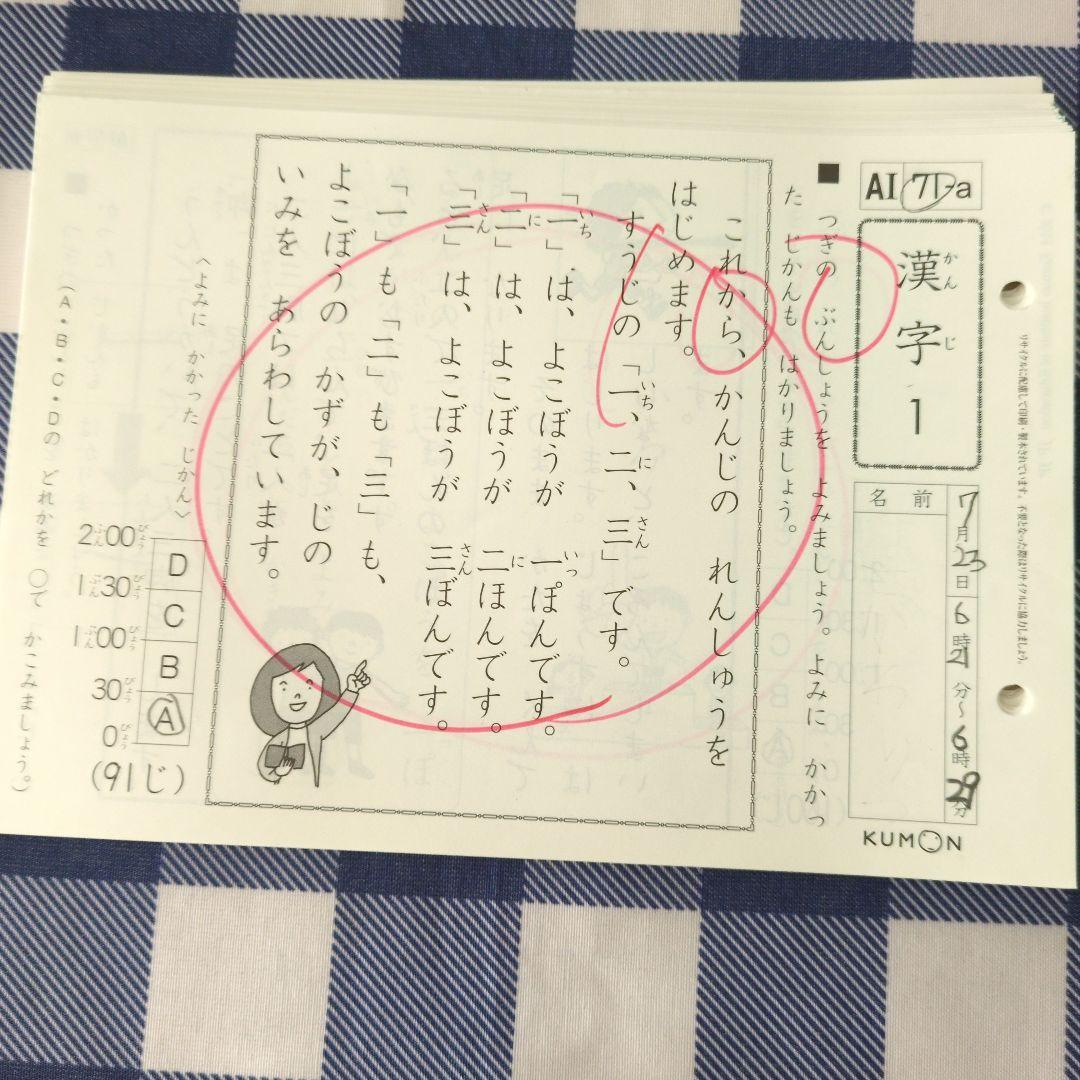 AI 71-a
漢字 1
かん じ
名前
7月23日 6時21分〜6時29分
KUMON
リサイクルに配慮して印刷・製本されています。不要となった際はリサイクルに協力しましょう。
■ つぎの ぶんしょうを よみましょう。よみに かかっ
た じかんも はかりましょう。
これから、かんじの れんしゅうを
はじめます。
すうじの「一、二、三」です。
いち に さん
「一」は、よこぼうが 一ぽんです。
いち いっ
「二」は、よこぼうが 二ほんです。
に に
「三」は、よこぼうが 三ぼんです。
さん さん
「一」も「二」も「三」も、
よこぼうの かずが、じの
いみを あらわしています。
〈よみに かかった じかん〉
2ぷん00びょう
D
1ぷん30びょう
C
1ぷん00びょう
B
30びょう
A
0びょう
(91じ)
(A・B・C・Dの どれかを ○で かこみましょう。)